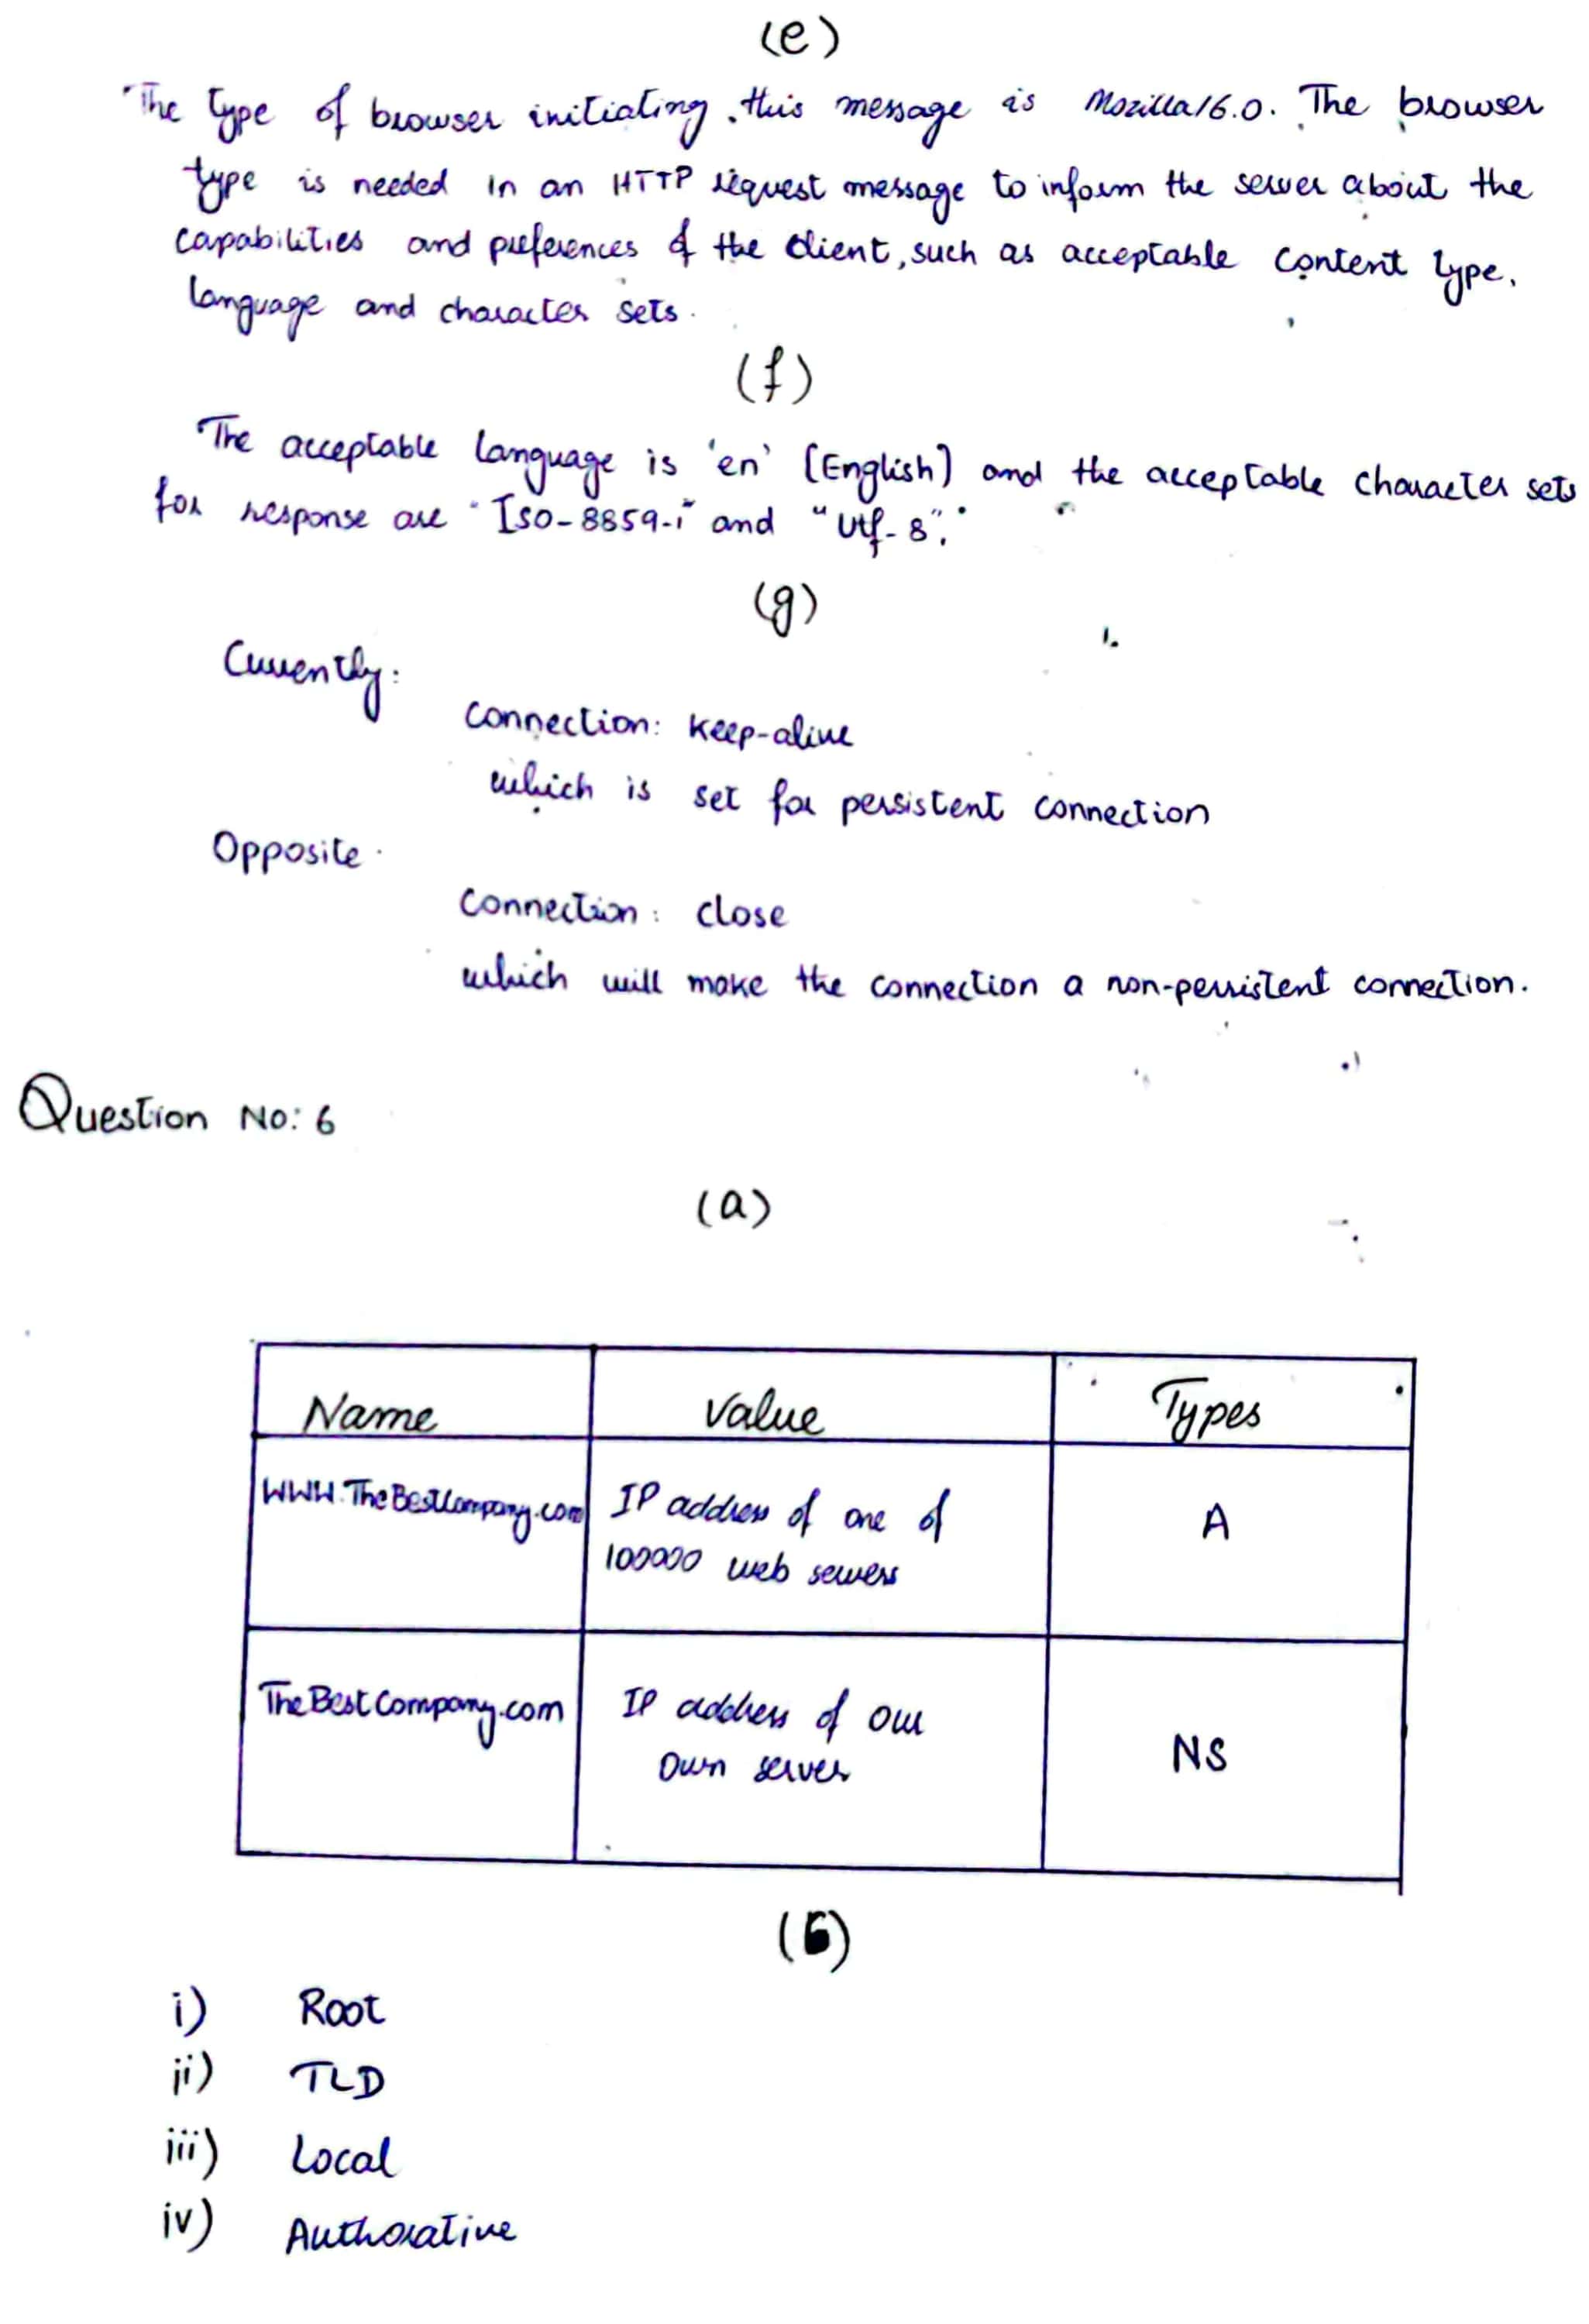 (e)
The type of browser initiating this message is Mozilla/6.0. The browser
type is needed in an HTTP request message to inform the server about the
capabilities and preferences of the client, such as acceptable content type,
language and character sets.
(f)
The acceptable language is 'en' (English) and the acceptable character sets
for response are "Iso-8859-i" and "Utf-8".
(g)
Currently:
Connection: Keep-alive
which is set for persistent connection
Opposite.
Connection: close
which will make the connection a non-persistent connection.
Question No: 6
(a)
Name Value Types
WWW.TheBestCompany.com IP address of one of A
100000 web servers
TheBestCompany.com IP address of our NS
own server
(b)
i) Root
ii) TLD
iii) Local
iv) Authorative